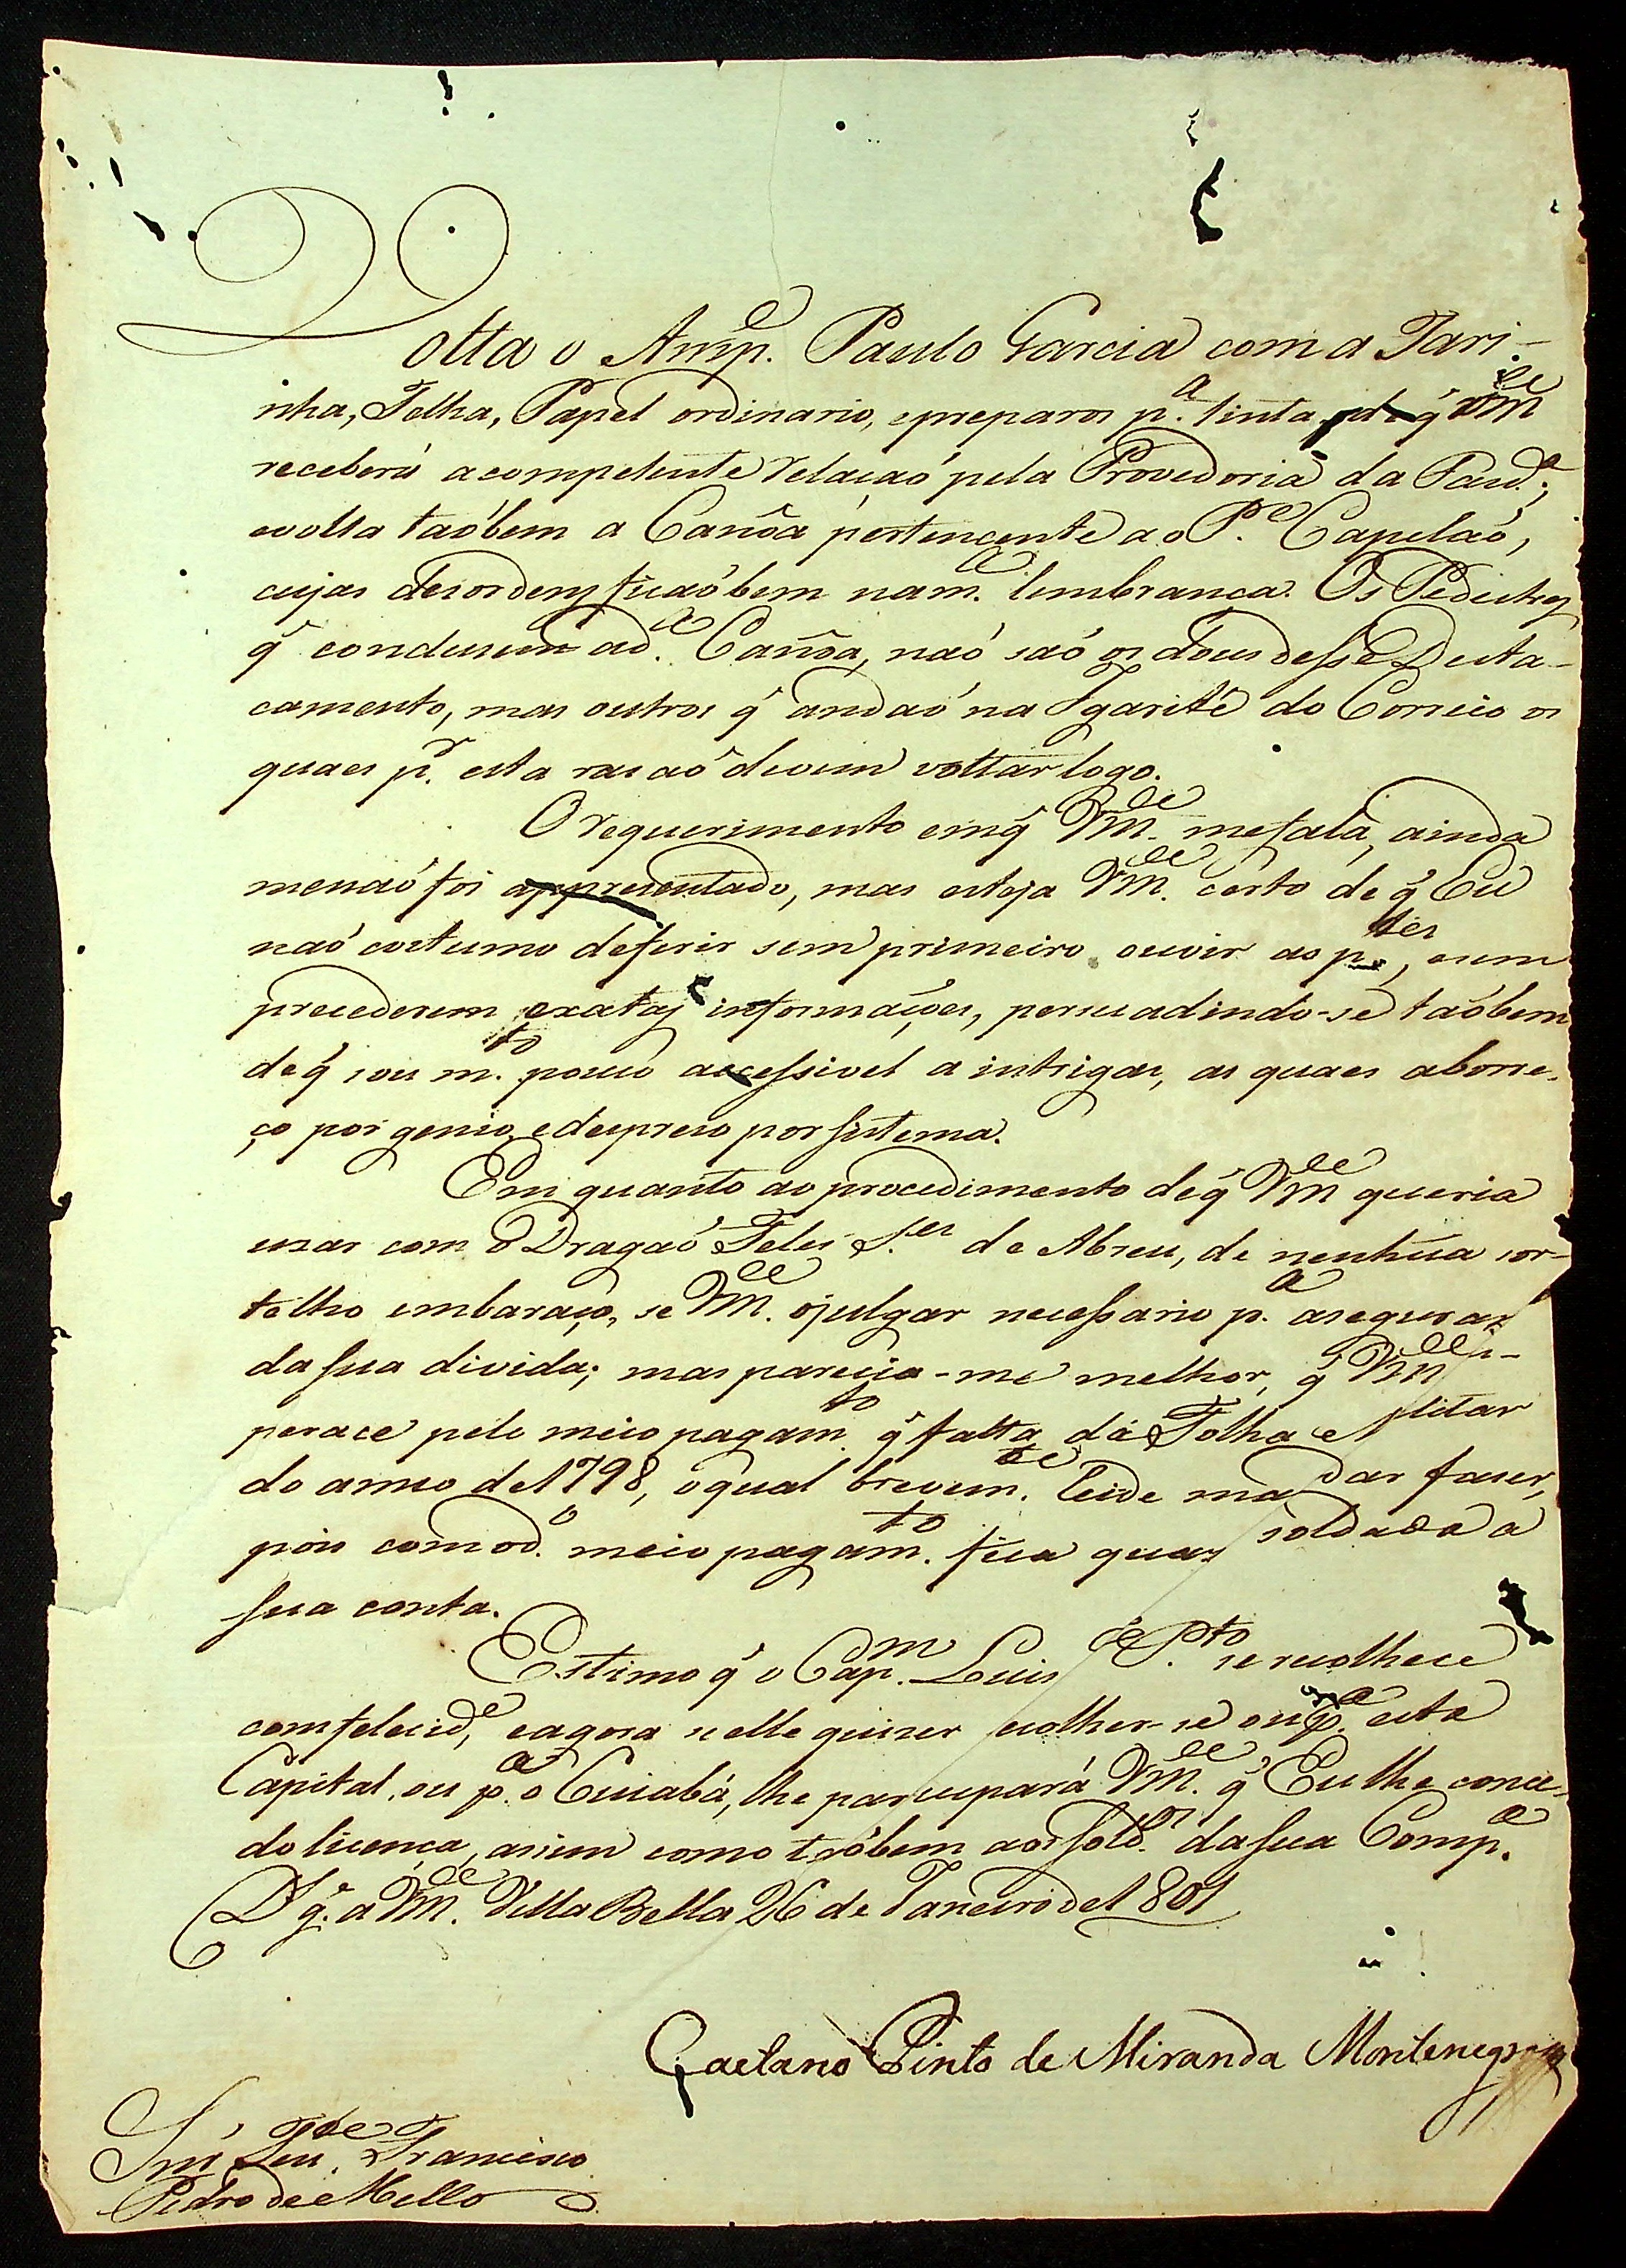 Volta o Ansp.e Paulo Garcia com a Fari-
nha, Telha, Papel ordinario, e preparos p.a tinta, de q̃ VM.ce
receberá a competente relaçaõ pela Provedoria da Faz.da;
e volta taõbem a Canôa pertencente ao P.e Capelaõ,
cujas desordens ficaõ bem na m.ce lembrança. Os Pedestres
q̃ condusem a d.a Canôa, naõ saõ os dous desse Desta-
camento, mas outros q̃ andaõ na Igarité do Correio os
quaes p.r esta rasaõ devem voltar logo.
O requerimento em q̃ VM.ce me fala, ainda
me naõ foi appresentado, mas esteja VM.ce certo de q̃ Eu
naõ costumo deferir sem primeiro ouvir as p.tes, e sem
precederem exatas informaçoes, persuadindo-se taõbem
de q̃ sou m.to pouco accessivel a intrigas, as quaes aborre-
ço por genio, e despreso por sistema.
Em quanto ao procedimento de q̃ VM.ce queria
usar com o Dragaõ Teles S.es de Abreu, de nenhũa sor-
te lho embaraço, se VM.ce o julgar necessario p.a asegurar
da sua divida; mas parecia-me melhor, q̃ VM.ce es-
perace pelo meio pagam.to q̃ falta da Folha Militar
do anno de 1798, o qual brevem.te heide mandar faser,
pois com o d.o meio pagam.to fica quaz soldada a
sua conta.
Estimo q̃ o Cap.m Luis de P.to se recolhece
com felecid.e, e agora se elle quiser recolher-se ou p.a esta
Capital, ou p.a o Cuiabá, lhe participará VM.ce q̃ Eu lhe conce-
do licença, assim como taõbem aos Sold.os da sua Comp.a
D.s g.e a VM.ce Villa Bella 26 de Janeiro de 1801
Caetano Pinto de Miranda Montenegro
Snr̃ Ten.te Francisco
Pedro de Mello